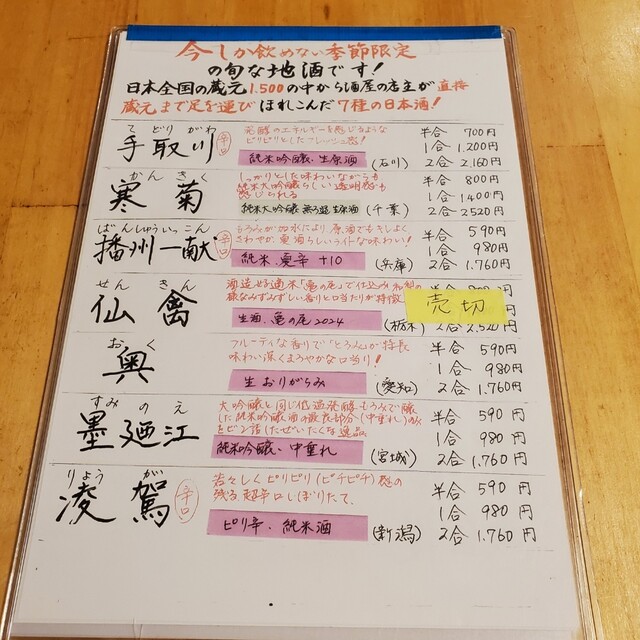 今しか飲めない季節限定
の旬な地酒です!
日本全国の蔵元1.500の中から酒屋の店主が直接
蔵元まで足を運びほれこんだ7種の日本酒!
てどりがわ
手取川 辛口
発酵のエネルギーを感じるような
ピリピリとしたフレッシュ感!
純米吟醸、生原酒 (石川)
半合 700円
1合 1.200円
2合 2.160円
かんきく
寒菊
しっかりとした味わいながらも
純米大吟醸らしい透明感も
感じられる
純米大吟醸 無ろ過生原酒 (千葉)
半合 800円
1合 1400円
2合 2520円
ばんしゅういっこん
播州一献 辛口
もろみが加水により、原酒でもきしよく
さわやか、夏酒らしいライトな味わい!
純米 夏辛 +10 (兵庫)
半合 590円
1合 980円
2合 1.760円
せんきん
仙禽
酒造好適米「亀の尾」で仕込み
様なみずみずしい香りと口当たりが特徴
生酒、亀の尾 2024 (栃木)
売切
2合 2.520円
おく
奥
フルーティな香りで「とろみ」が特長
味わい深くまろやかな口当り!
生おりがらみ (愛知)
半合 590円
1合 980円
2合 1.760円
すみのえ
墨廼江
大吟醸と同じ低温発酵、もろみで醸
した純米吟醸酒の最良部分(中垂れ)のみ
をビン詰したぜいたくな逸品。
純米吟醸、中垂れ (宮城)
半合 590円
1合 980円
2合 1.760円
りょうが
凌駕 辛口
若々しくピリピリ(ピチピチ)感の
残る超辛口しぼりたて、
ピリ辛、純米酒 (新潟)
半合 590円
1合 980円
2合 1.760円